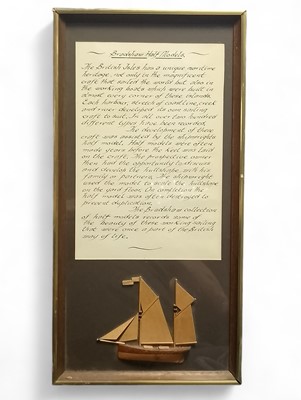 Bradshaw Half Models.
The British Isles has a unique maritime
heritage, not only in the magnificent
craft that sailed the world but also in
the working boats which were built in
almost every corner of these islands.
Each harbour, stretch of coastline, creek
and river developed its own sailing
craft to suit. In all over two hundred
different types have been recorded.
The development of these
craft was assisted by the shipwrights
half model. Half models were often
made years before the keel was laid
on the craft. The prospective owner
then had the opportunity to discuss
and develop the hullshape with his
family or partners. The shipwright
used the model to scale the hullshape
on the yard floor. On completion the
half model was often destroyed to
prevent duplication.
The Bradshaw collection
of half models records some of
the beauty of these working sailing
that were once a part of the British
way of life.